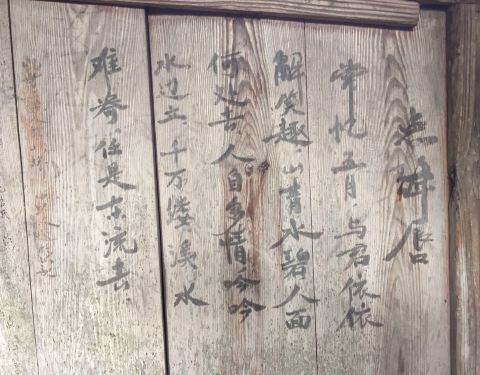 点绛唇
常忆五月与君依依
解笑趣山青水碧人面
何处去人自多情吟吟
水边立千万缕溪水
难寄任是东流去